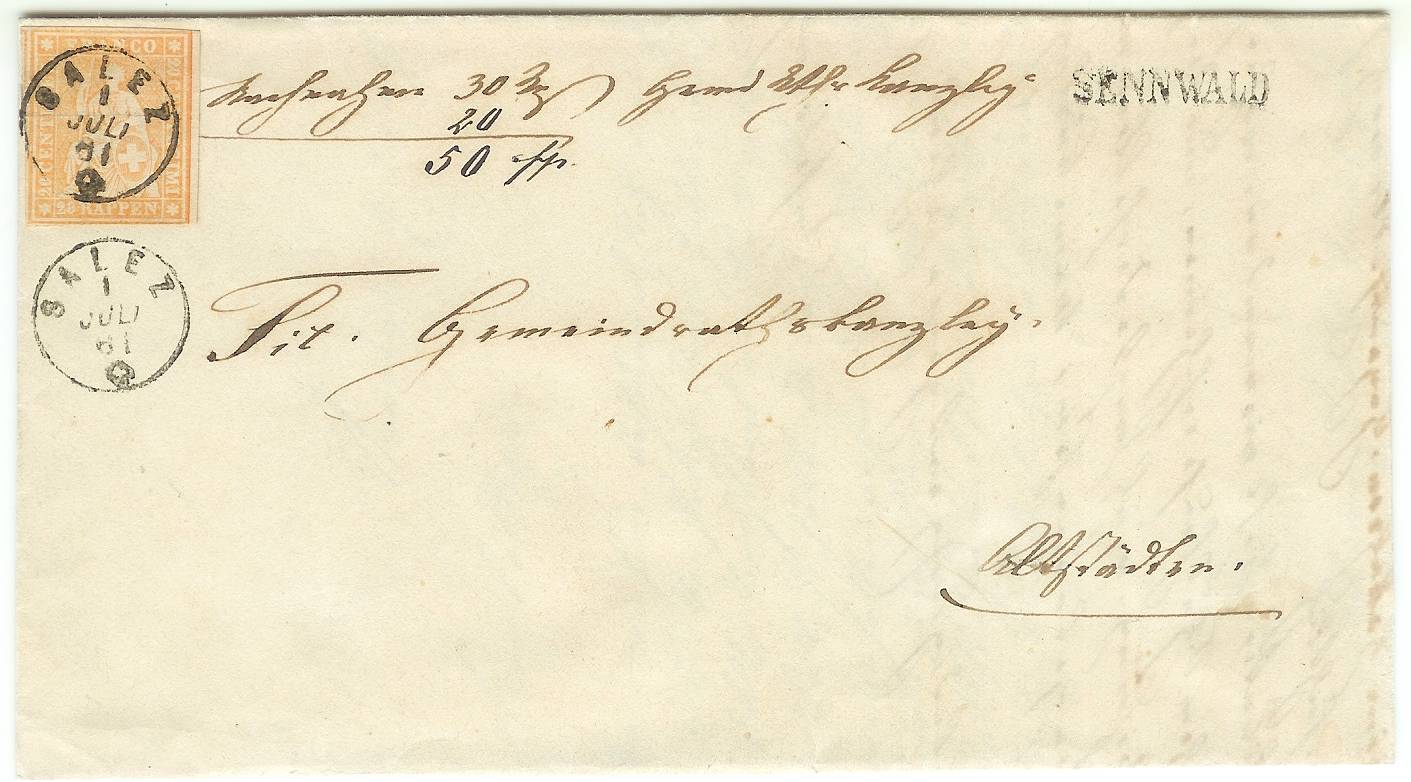 FRANCO
20 CENTIMI
20 CENT
20 RAPPEN
SALEZ
1
JULI
61
Nachnahme 30 Rp Gemd Rths Kanzley
20
50 rp.
SENNWALD
SALEZ
1
JULI
61
Tit. Gemeindrathskanzley.
Altstädten.